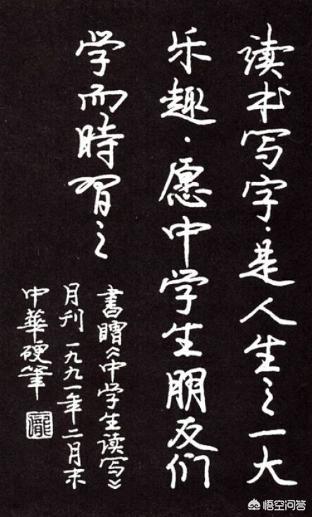 读书写字·是人生之一大
乐趣·愿中学生朋友们
学而時習之
書贈《中学生读写》
月刊 一九九一年二月末
中華硬筆
悟空问答